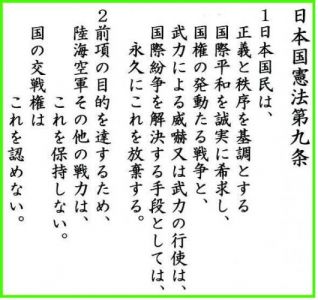 日本国憲法第九条
１日本国民は、
正義と秩序を基調とする
国際平和を誠実に希求し、
国権の発動たる戦争と、
武力による威嚇又は武力の行使は、
国際紛争を解決する手段としては、
永久にこれを放棄する。
２前項の目的を達するため、
陸海空軍その他の戦力は、
これを保持しない。
国の交戦権は
これを認めない。